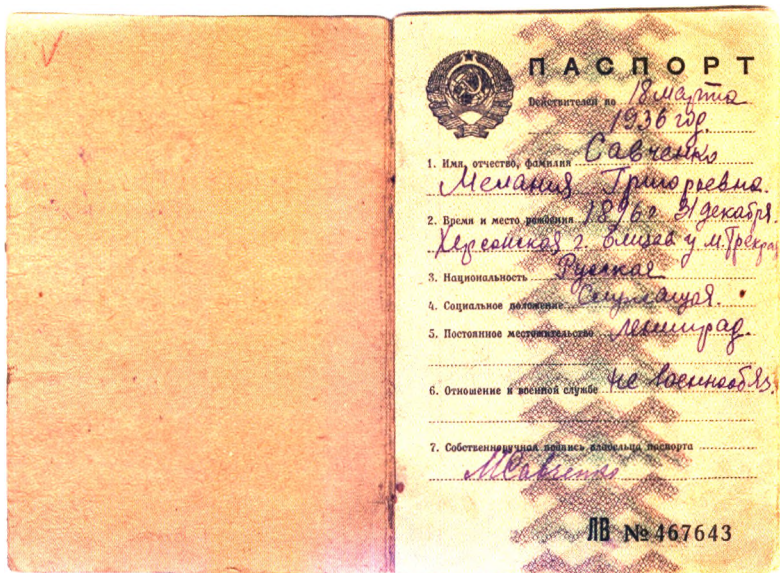 ПАСПОРТ
Действителен по 18 марта
1936 год.
1. Имя, отчество, фамилия Савченко
Мелания Григорьевна.
2. Время и место рождения 1896 г. 31 декабря.
Херсонской г. Елисав у м.
3. Национальность Русская
4. Социальное положение Служащая.
5. Постоянное местожительство Ленинград.
6. Отношение к военной службе не военнообяз.
7. Собственноручная подпись владельца паспорта
МСавченко
ЛВ № 467643